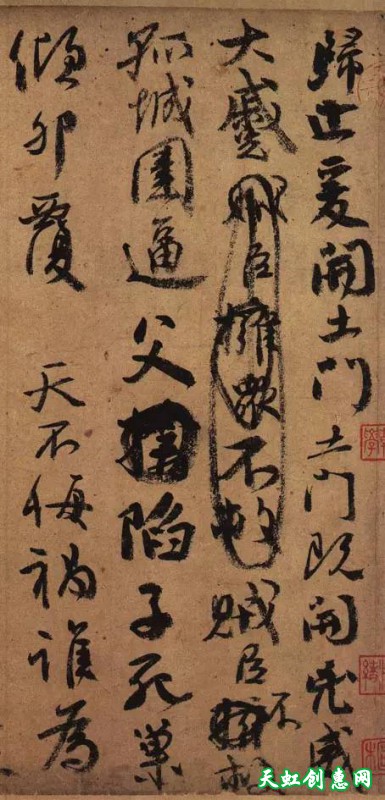 歸止爰開土門土門既開凶威
大蹙賊臣擁衆不救賊臣不救
孤城圍逼父陷子死巢
傾卵覆 天不悔禍誰為
天虹创惠网